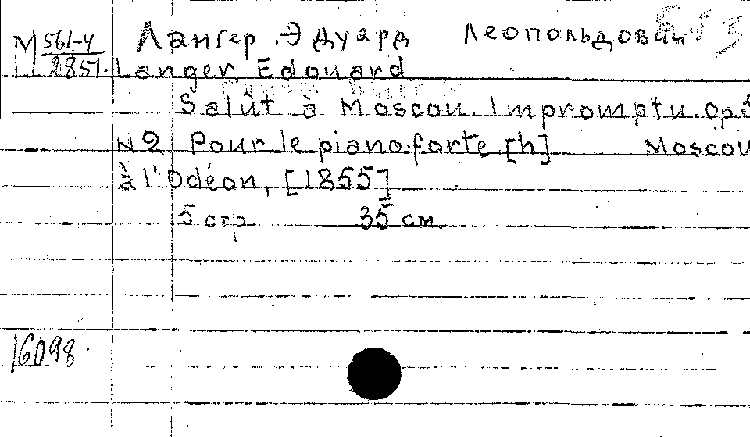 М 561-4 Лангер Эдуард Леопольдович
2851. Langer Edouard
Salût à Moscou. Impromptu. op
N2 Pour le piano-forte. [h] Moscou
à l'Odéon, [1855]
5 стр 35 см
16098.